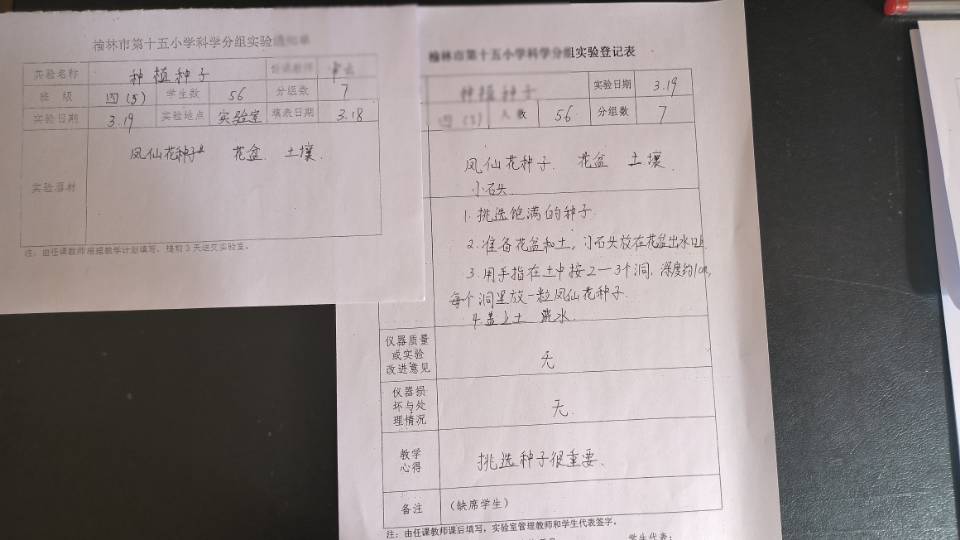 榆林市第十五小学科学分组实验通知单
实验名称 种植种子 任课教师
班级 四(5) 学生数 56 分组数 7
实验日期 3.19 实验地点 实验室 填表日期 3.18
实验器材 凤仙花种子 花盆 土壤
注：由任课教师根据教学计划填写，提前3天送交实验室。
榆林市第十五小学科学分组实验登记表
种植种子 实验日期 3.19
四(5) 人数 56 分组数 7
凤仙花种子 花盆 土壤
小石头
1. 挑选饱满的种子
2. 准备花盆和土，小石头放在花盆出水口上
3. 用手指在土中按2—3个洞，深度约1cm,
每个洞里放一粒凤仙花种子
4. 盖上土 浇水
仪器质量
或实验
改进意见
无
仪器损
坏与处
理情况
无
教学
心得
挑选种子很重要
备注 (缺席学生)
注：由任课教师课后填写，实验室管理教师和学生代表签字。
学生代表：